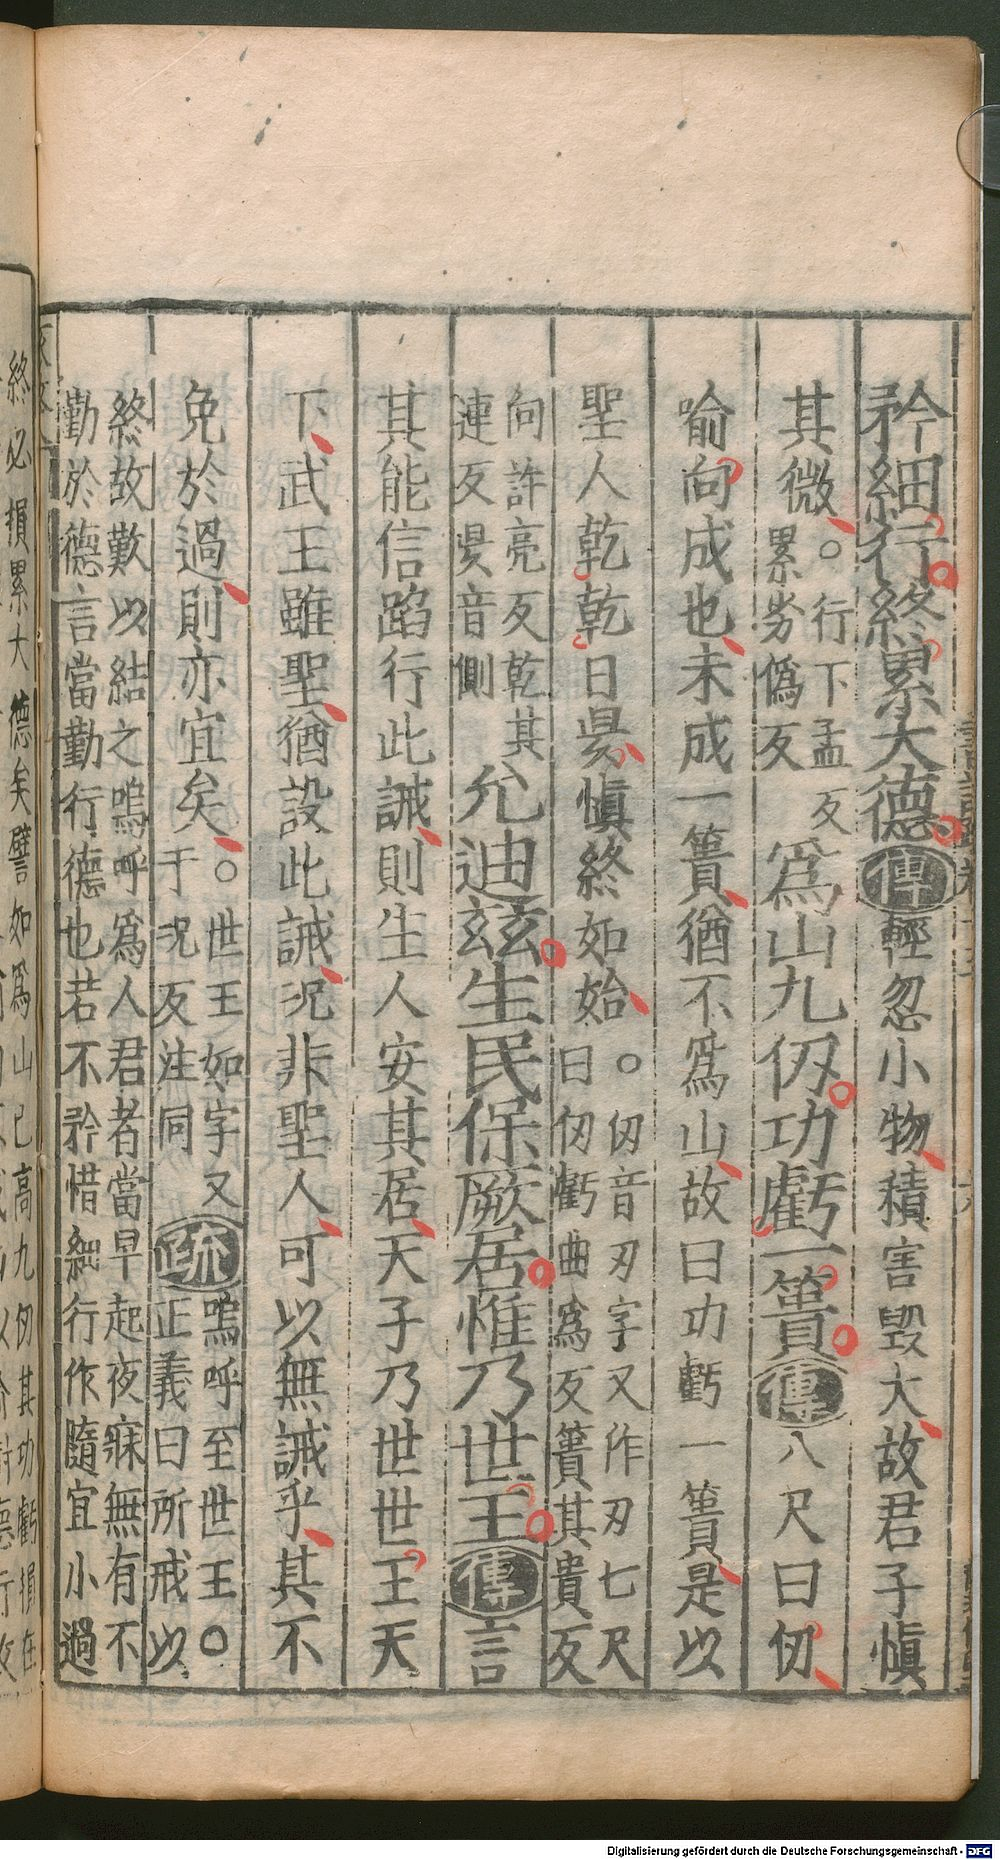 矜細行終累大德傳輕忽小物積害毀大故君子慎
其微○行下孟反累劣僞反爲山九仞功虧一簣傳八尺曰仞
喻向成也未成一簣猶不爲山故曰功虧一簣是以
聖人乾乾日昃慎終如始○仞音刃字又作刃七尺曰仞虧曲爲反簣其貴反
向許亮反乾其連反昃音側允迪玆生民保厥居惟乃世王傳言
其能信蹈行此誡則生人安其居天子乃世世王天
下武王雖聖猶設此誡况非聖人可以無誡乎其不
免於過則亦宜矣○世王如字又于况反注同疏嗚呼至世王○正義曰所戒以
終故歎以結之嗚呼爲人君者當早起夜寐無有不
勤於德言當勤行德也若不矜惜細行作隨宜小過
終必損累大德矣譬如爲山已高九仞其功虧損在
Digitalisierung gefördert durch die Deutsche Forschungsgemeinschaft - DFG